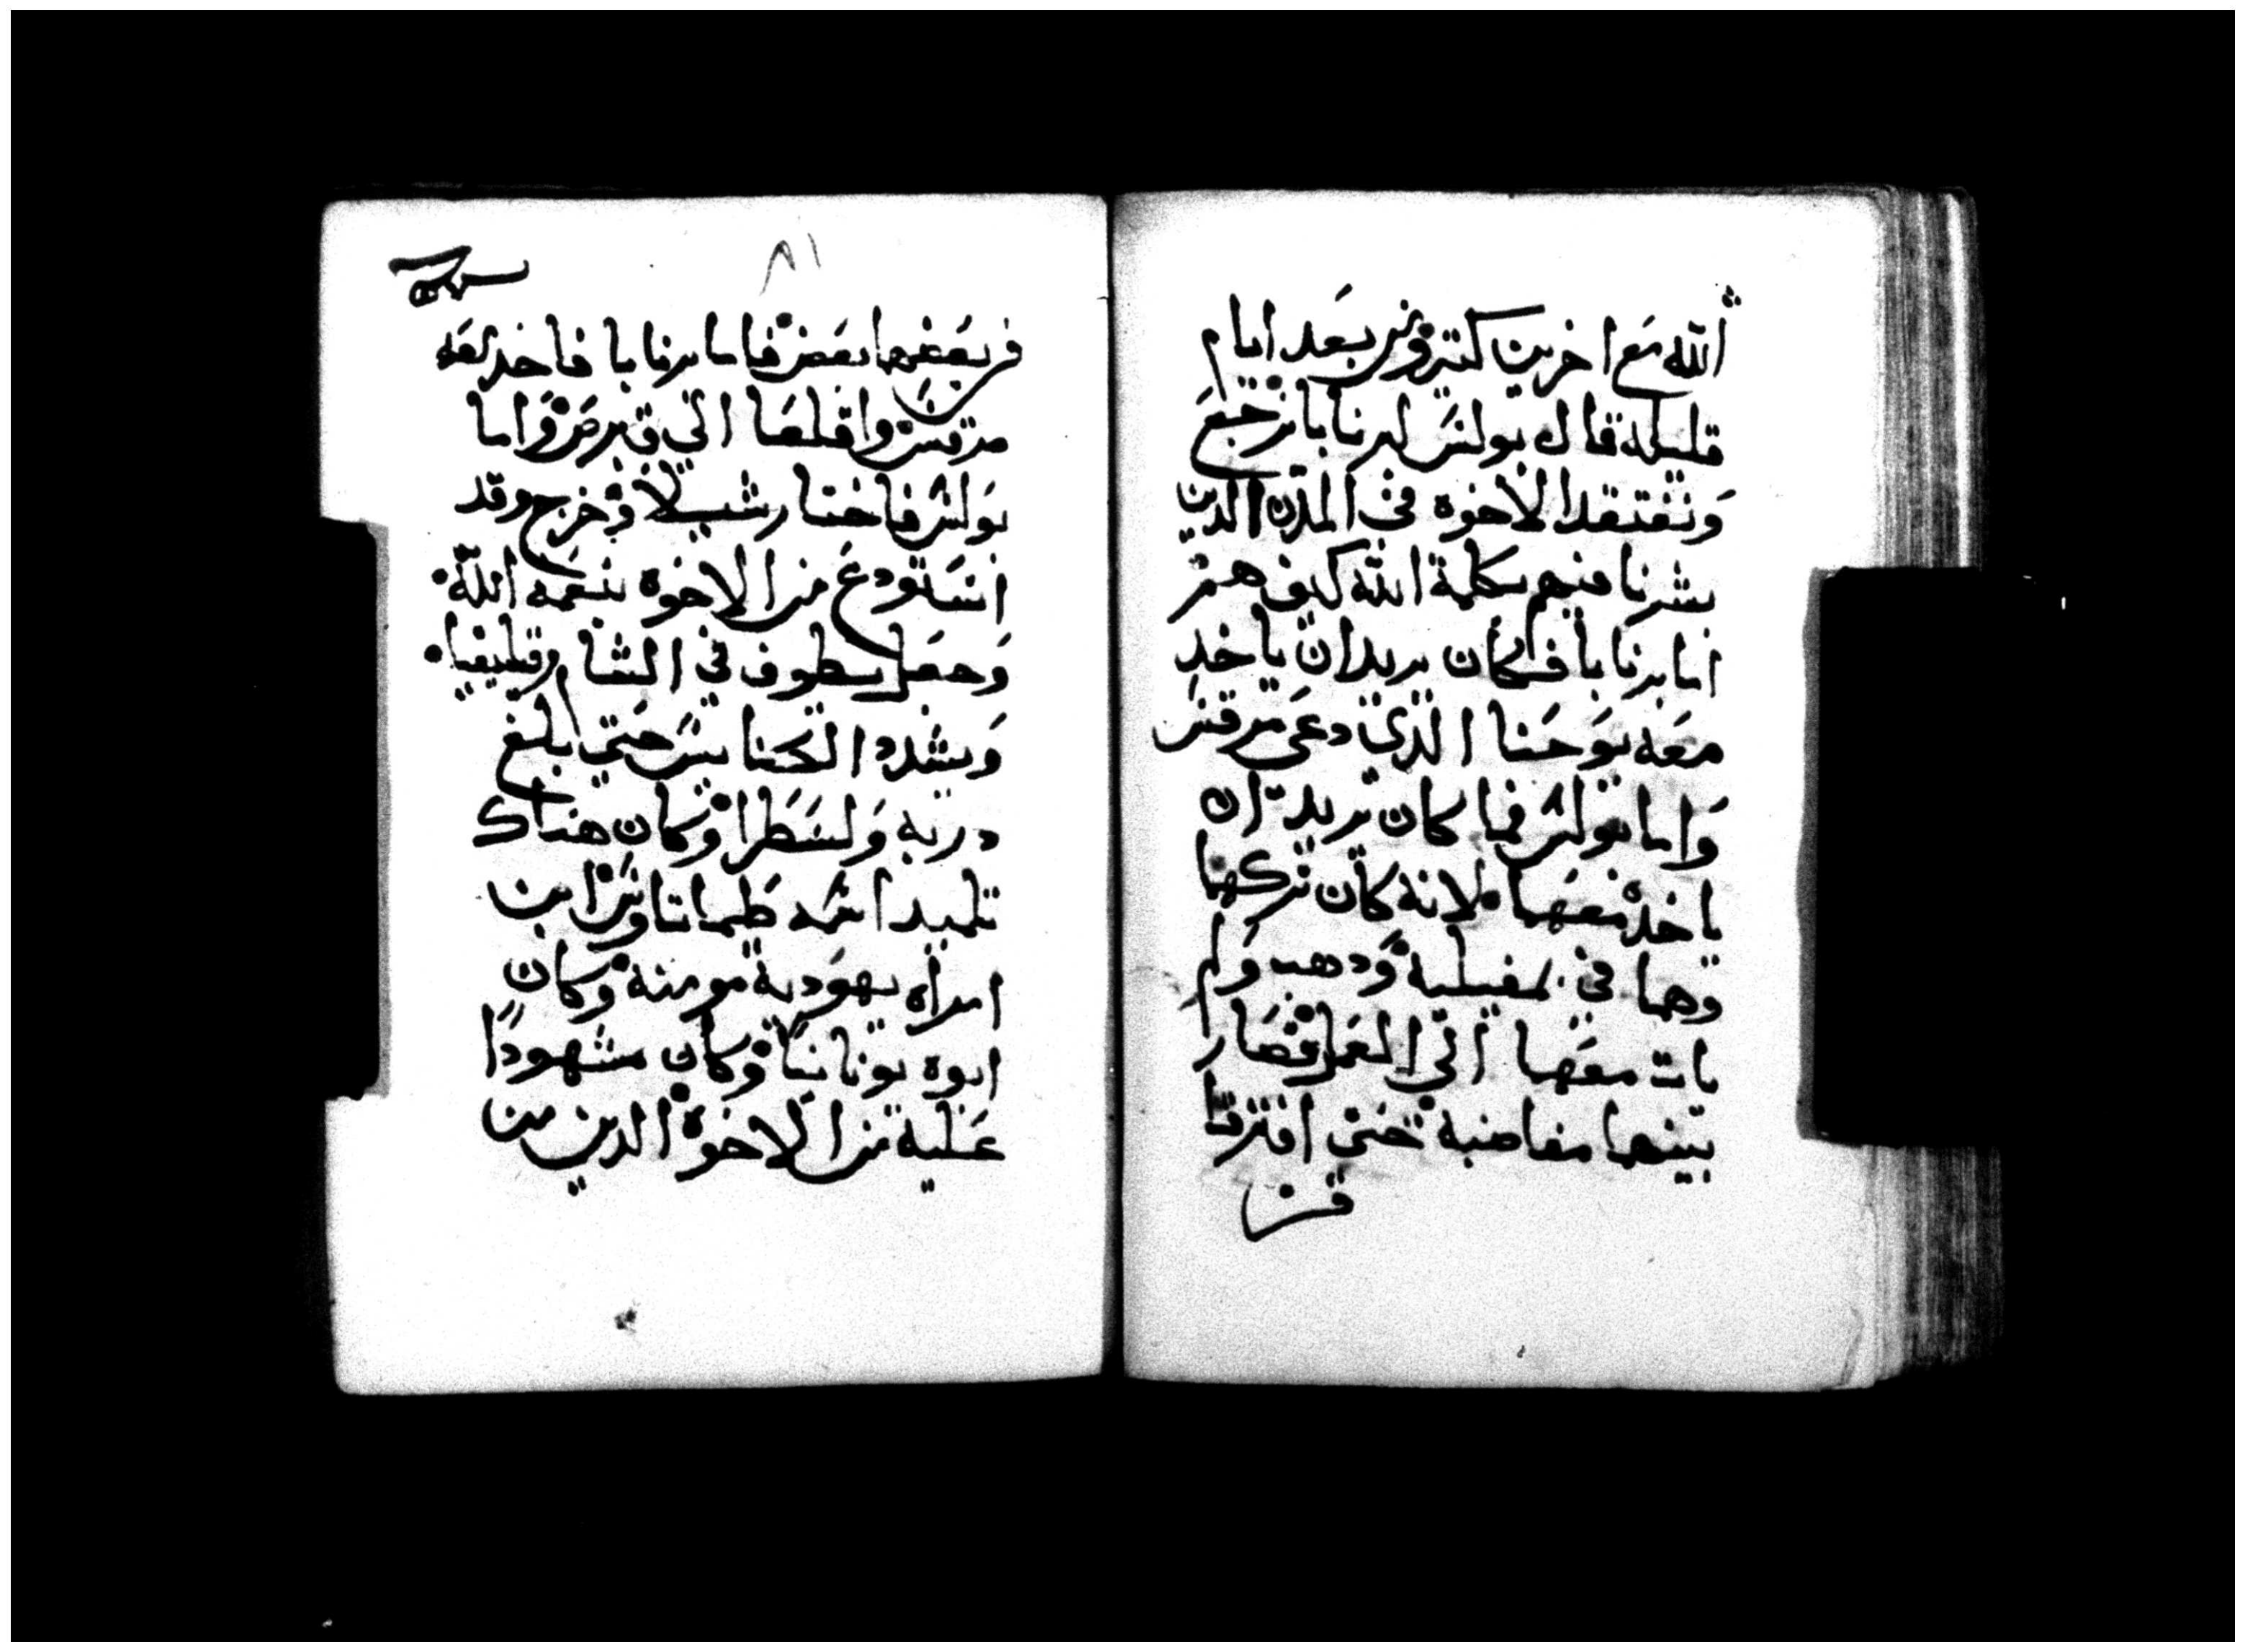 الله مع اخرين كتيرون من بعد ايام
قليله قال بولس لبرنابا نرجع
ونفتقد الاخوه في المدن الدين
بشرنا فيهم بكلمة الله كيف هم
اما برنابا فكان يريد ان ياخد
معه يوحنا الدي دعى مرقس
واما بولس فما كان يريد ان
ياخده معهما لانه كان تركهما
وهما في بمفيلية ودهب ولم
يات معهما الى العمل فصار
بينهما مغاضبة حتى افترقا
من
٨١
من بعضهما بعض فاما برنابا فاخد معه
مرقس واقلعا الي قبرص واما
بولس فاختار شيلا وخرج وقد
استودع من الاخوه بنعمه الله
وجعل يطوف في الشام وقيليقيا
ويشدد الكنايس حتي بلغ
دربه ولسطرا وكان هناك
تلميد اسمه طيماتاوس ابن
امراه يهودية مومنة وكان
ابوه يونانيا وكان مشهودا
عليه من الاخوة الدين من